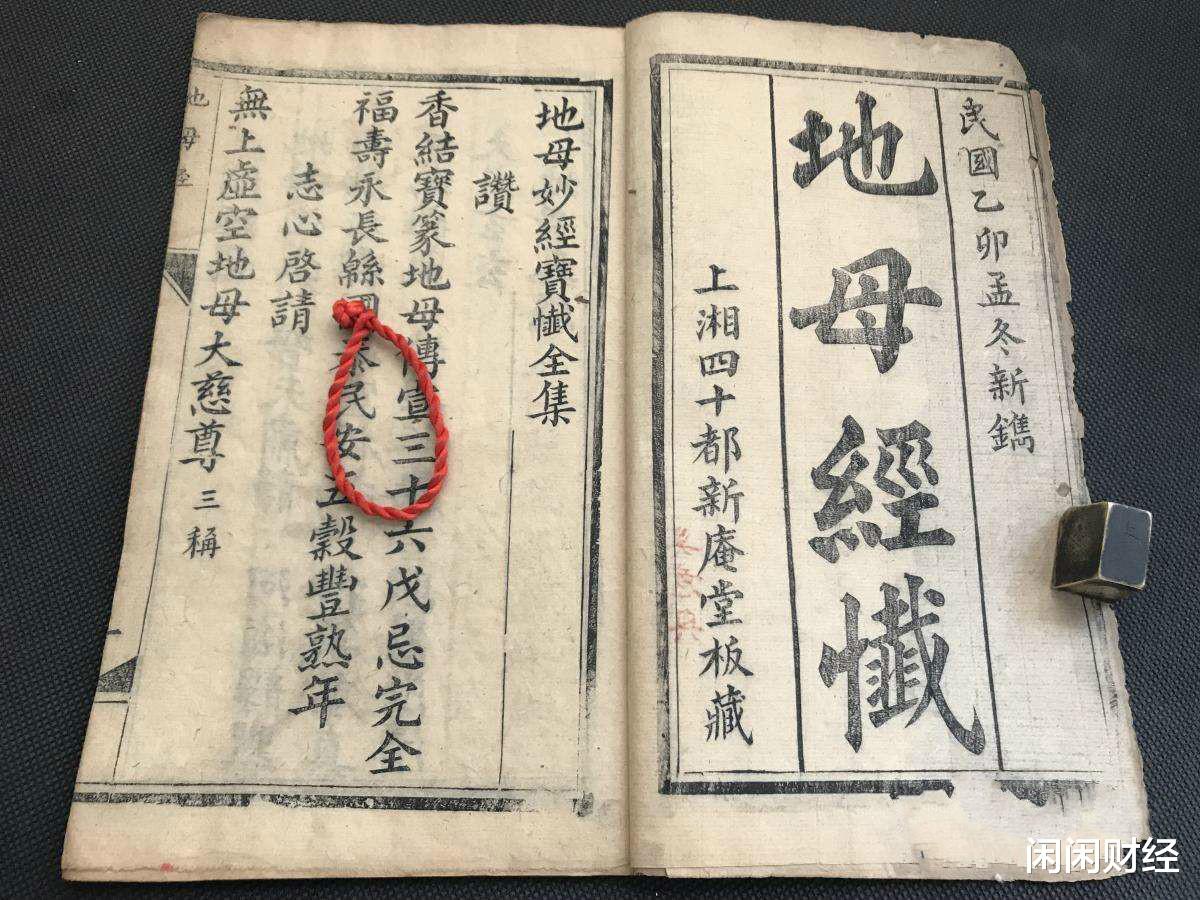 民國乙卯孟冬新鐫
地母經懺
上湘四十都新庵堂板藏
地母妙經寶懺全集
讚
香結寶篆地母傳宣三十六戊忌完全
福壽永長緜國泰民安五穀豐熟年
志心啓請
無上虛空地母大慈尊 三稱
地母
闲闲财经